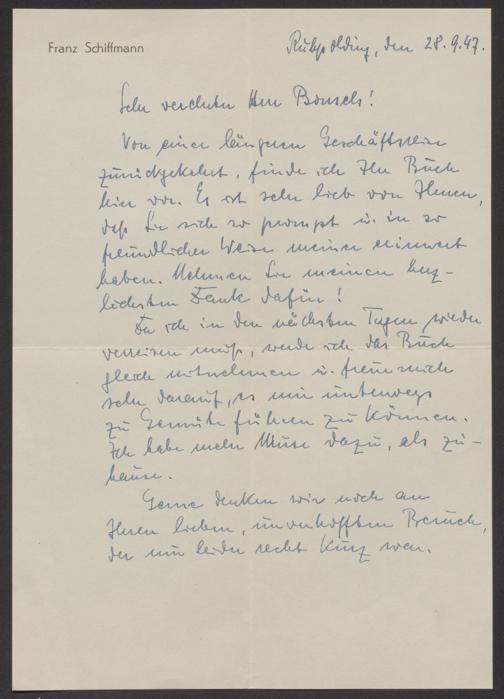 Franz Schiffmann
Ruhpolding, den 28.9.47.
Sehr verehrter Herr Bonsels!
Von einer längeren Geschäftsreise
zurückgekehrt, finde ich Ihr Buch
hier vor. Es ist sehr lieb von Ihnen,
daß Sie sich so prompt u. in so
freundlicher Weise meiner erinnert
haben. Nehmen Sie meinen herz-
lichsten Dank dafür!
Da ich in den nächsten Tagen wieder
verreisen muß, werde ich das Buch
gleich mitnehmen u. freue mich
sehr darauf, es mir unterwegs
zu Gemüte führen zu können.
Ich habe mehr Muse dazu, als zu-
hause.
Gerne denken wir noch an
Ihren lieben, unverhofften Besuch,
der nur leider recht kurz war.